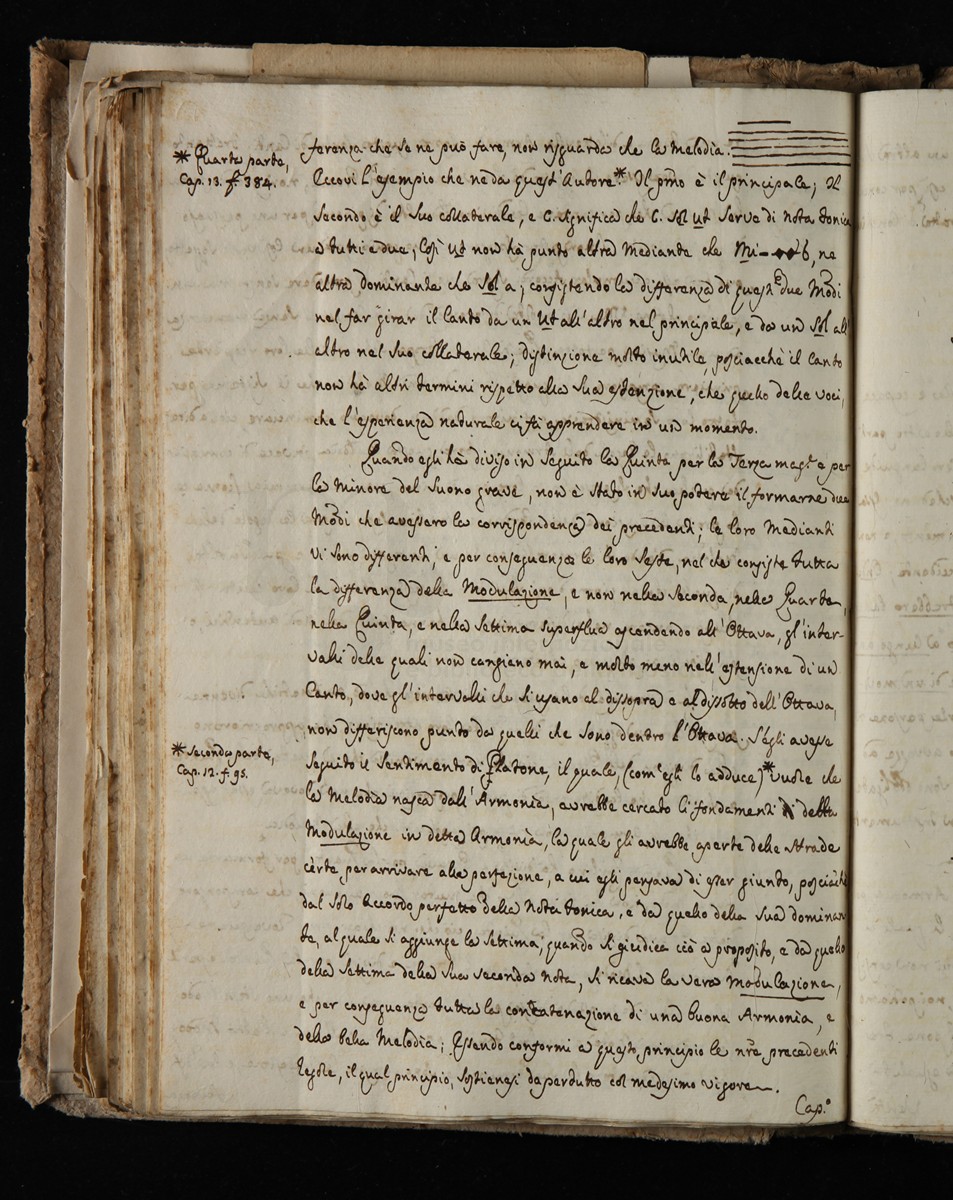 * Quarta parte,
Cap. 13. f. 384.
ferenza che se ne può fare, non risguarda che la Melodia.
Eccovi l'esempio che ne da quest'Autore* Il pmo è il principale; Il
secondo è il suo collaterale, e C. significa che C. Sol ut serve di nota tonica
a tutti e due; Così Ut non hà punto altra mediante che Mi- 6, ne
altra dominante che Sol a; consistendo la differenza di questi due Modi
nel far girar il Canto da un Ut all'altro nel principale, e da un Sol all
altro nel suo collaterale; distinzione molto inutile, posciacchè il Canto
non hà altri termini rispetto alla sua estenzione, che quello delle voci,
che l'esperienza naturale ci fà apprendere in un momento.
Quando egli hà diviso in seguito la Quinta per la Terza magre e per
la minore del suono grave, non è stato in suo potere il formarne due
Modi che avessero la corrispondenza dei precedenti; le loro Medianti
vi sono differenti, e per conseguenza le loro seste, nel che consiste tutta
la differenza della Modulazione, e non nella seconda, nella Quarta,
nella Quinta, e nella settima superflua ascendendo all'Ottava, gl'inter-
valli delle quali non cangiano mai, e molto meno nell'estensione di un
Canto, dove gl'intervalli che si usano al dissopra e al dissotto dell'Ottava,
non differiscono punto da quelli che sono dentro l'Ottava. S'egli avesse
* Seconda parte,
Cap. 12. f. 95.
seguito il sentimento di Platone, il quale, (com'egli lo adduce)* vuole che
la Melodia nasca dall'Armonia, avrebbe cercato li fondamenti della
Modulazione in detta Armonia, la quale gli avrebbe aperte delle strade
certe per arrivare alla perfezione, a cui egli pensava di esser giunto, posciachè
dal solo Accordo perfetto della Nota tonica, e da quello della sua dominan
te, al quale si aggiunge la settima, quando si giudica ciò a proposito, e da quello
della settima della sua seconda nota, si ricava la vera Modulazione,
e per conseguenza tutta la concatenazione di una buona Armonia, e
della bella Melodia; Essendo conformi a questo principio le nre precedenti
Regole, il qual principio, sostienesi da per dutto col medesimo vigore.
Cap.o